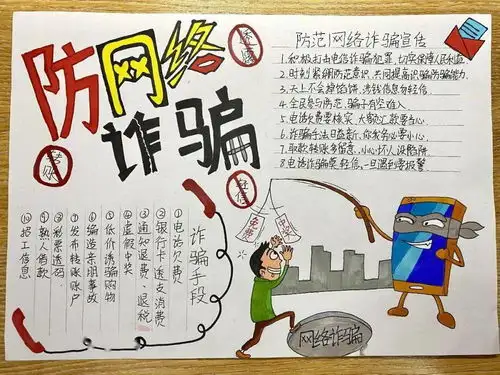 防网络
诈骗
防范网络诈骗宣传
1.积极打击电信诈骗犯罪,切实保障人民利益
2.时刻紧绷防范意识,共同提高识骗防骗能力
3.天上不会掉馅饼,涉钱信息勿轻信
4.全民参与防范,骗子有空难入
5.电话欠费要核实,大额汇款要当心
6.诈骗手法日益新,你我务必要小心
7.取款转账多留意,小心坏人设陷阱
8.电话诈骗莫轻信,一旦遇到要报警
轻信
免费
诈骗手段
①电话欠费
②银行卡透支消费
③通知退费、退税
④虚假中奖
⑤低价诱骗购物
⑥编造亲朋事故
⑦发布转账账户
⑧彩票透码
⑨熟人借款
⑩招工信息
网络诈骗